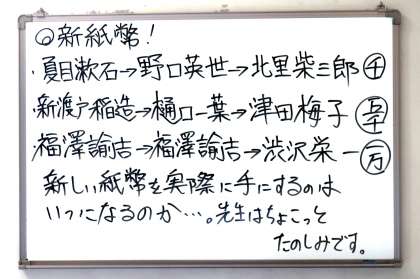 ◎新紙幣!
・夏目漱石→野口英世→北里柴三郎 千
・新渡戸稲造→樋口一葉→津田梅子 五千
福澤諭吉→福澤諭吉→渋沢栄一 万
新しい紙幣を実際に手にするのは
いつになるのか…。先生はちょこっと
たのしみです。